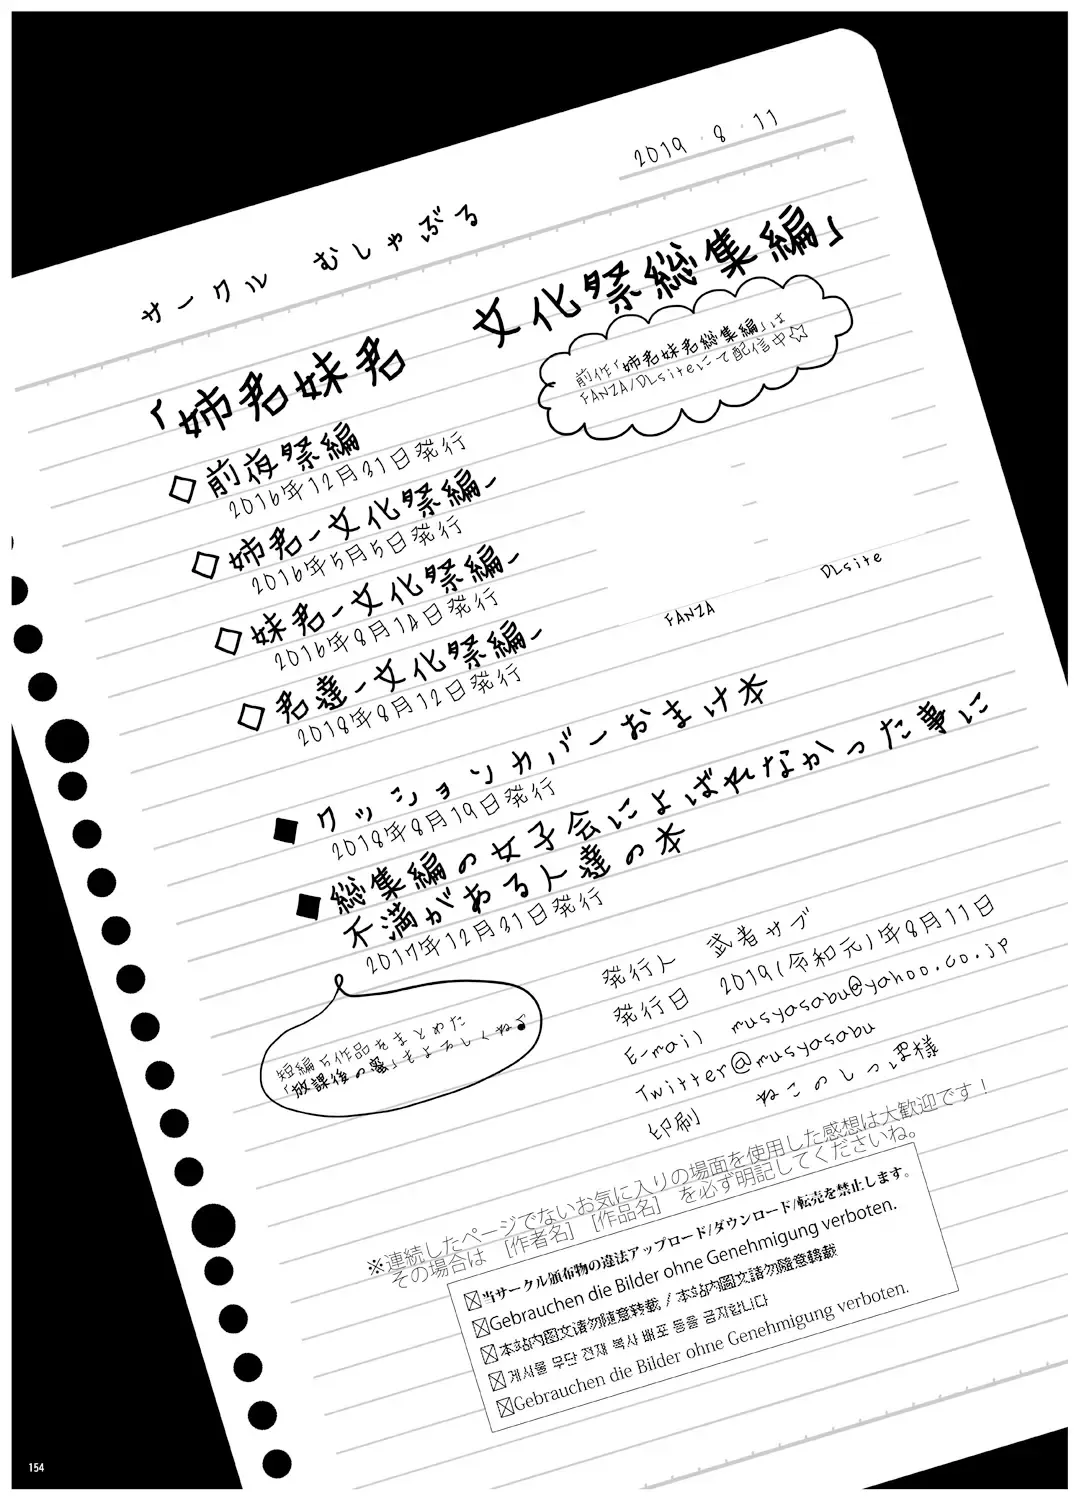 2019・8・11
サークル　むしゃぶる
「姉君妹君　文化祭総集編」
前作「姉君妹君総集編」は
FANZA/DLsiteにて配信中☆
◇前夜祭編
2016年12月31日発行
◇姉君-文化祭編-
2016年5月5日発行
◇妹君-文化祭編-
2016年8月14日発行
◇君達-文化祭編-
2018年8月12日発行
DLsite
FANZA
◆クッションカバーおまけ本
2018年8月19日発行
◆総集編の女子会によばれなかった事に
不満がある人達の本
2017年12月31日発行
短編5作品をまとめた
「放課後の蜜」もよろしくね♪
発行人　武者サブ
発行日　2019(令和元)年8月11日
E-mail　musyasabu@yahoo.co.jp
Twitter@musyasabu
印刷　ねこのしっぽ様
※連続したページでないお気に入りの場面を使用した感想は大歓迎です！
その場合は　[作者名]　[作品名]　を必ず明記してくださいね。
☒当サークル頒布物の違法アップロード/ダウンロード/転売を禁止します。
☒Gebrauchen die Bilder ohne Genehmigung verboten.
☒本站内图文请勿随意转载 / 本站內圖文請勿隨意轉載
☒게시물 무단 전재 복사 배포 등을 금지합니다
☒Gebrauchen die Bilder ohne Genehmigung verboten.
154